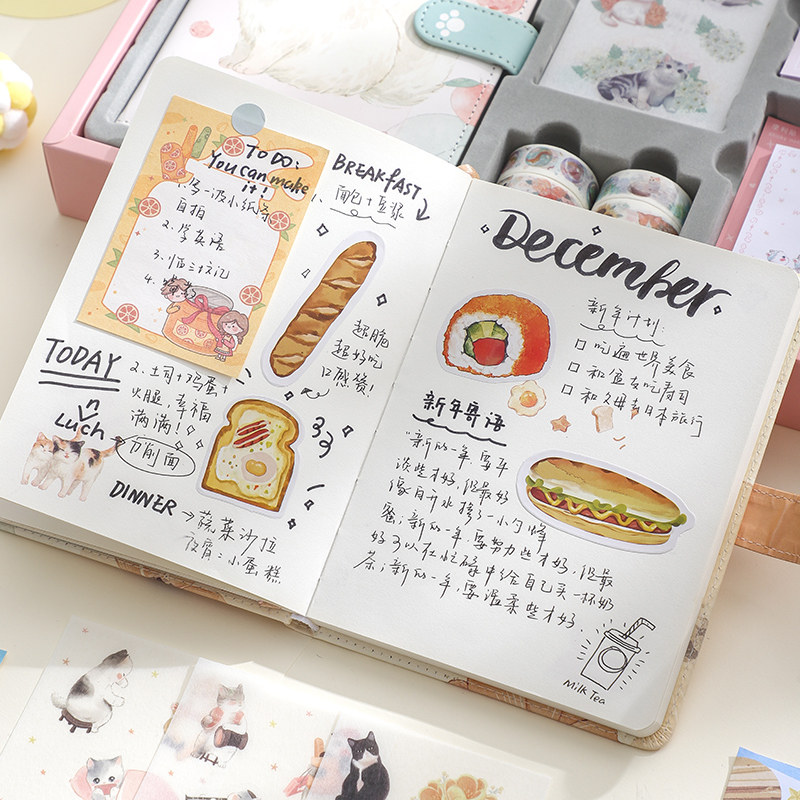 TO DO:
You can make
it!
1. 录一段小纸条
自拍
2. 学英语
3. 临三坟记
4.
BREAKFAST
面包+豆浆
超脆
超好吃
口感赞!
TODAY
2. 土司+鸡蛋+
火腿, 幸福
满满!
n
Luch
刀削面
DINNER → 蔬菜沙拉
夜宵: 小蛋糕
December
新年计划:
口 吃遍世界美食
口 和盆友吃寿司
口 和父母去日本旅行
新年寄语
"新的一年, 要平
淡些才好, 但最好
像白开水掺了一小勺蜂
蜜; 新的一年, 要努力些才好, 但最
好可以在忙碌中给自己买一杯奶
茶; 新的一年, 要温柔些才好
Milk Tea